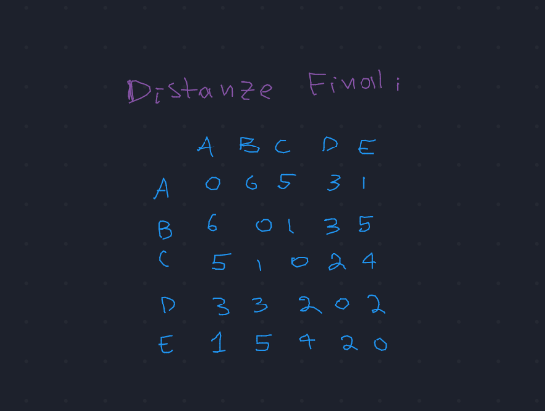 Distanze Finali
A B C D E
A 0 6 5 3 1
B 6 0 1 3 5
C 5 1 0 2 4
D 3 3 2 0 2
E 1 5 4 2 0